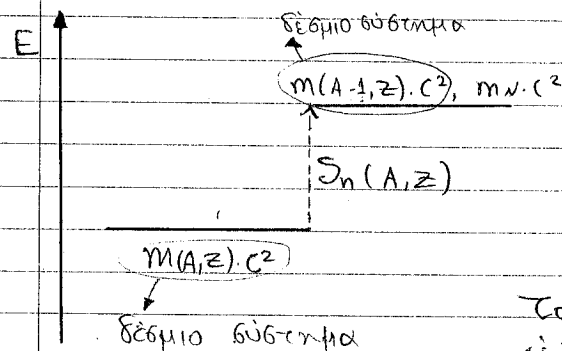 δέσμιο σύστημα
E
m(A-1,Z)·c², mN·c²
Sn(A,Z)
m(A,Z)·c²
δέσμιο σύστημα